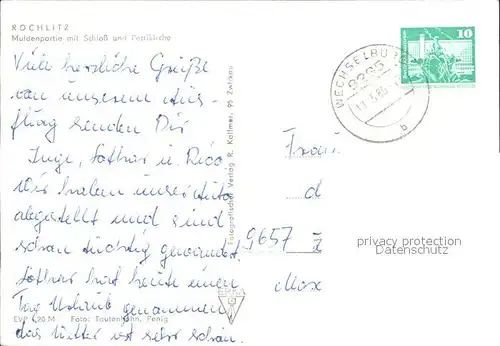 ROCHLITZ
Muldenpartie mit Schloß und Petrikirche
Viele herzliche Grüße
von unserem Aus-
flug senden Dir
Inge, Lothar u. Rico
Wir haben unser Auto
abgestellt und sind
schon tüchtig gewandert.
Lothar hat heute einen
Tag Urlaub genommen,
das Wetter ist sehr schön.
EVP 0,20 M Foto: Tautenhahn, Penig
Fotografischer Verlag R. Kallmer, 95 Zwickau
WECHSELBU
9295
b
10
Frau
d
9657
privacy protection
Datenschutz